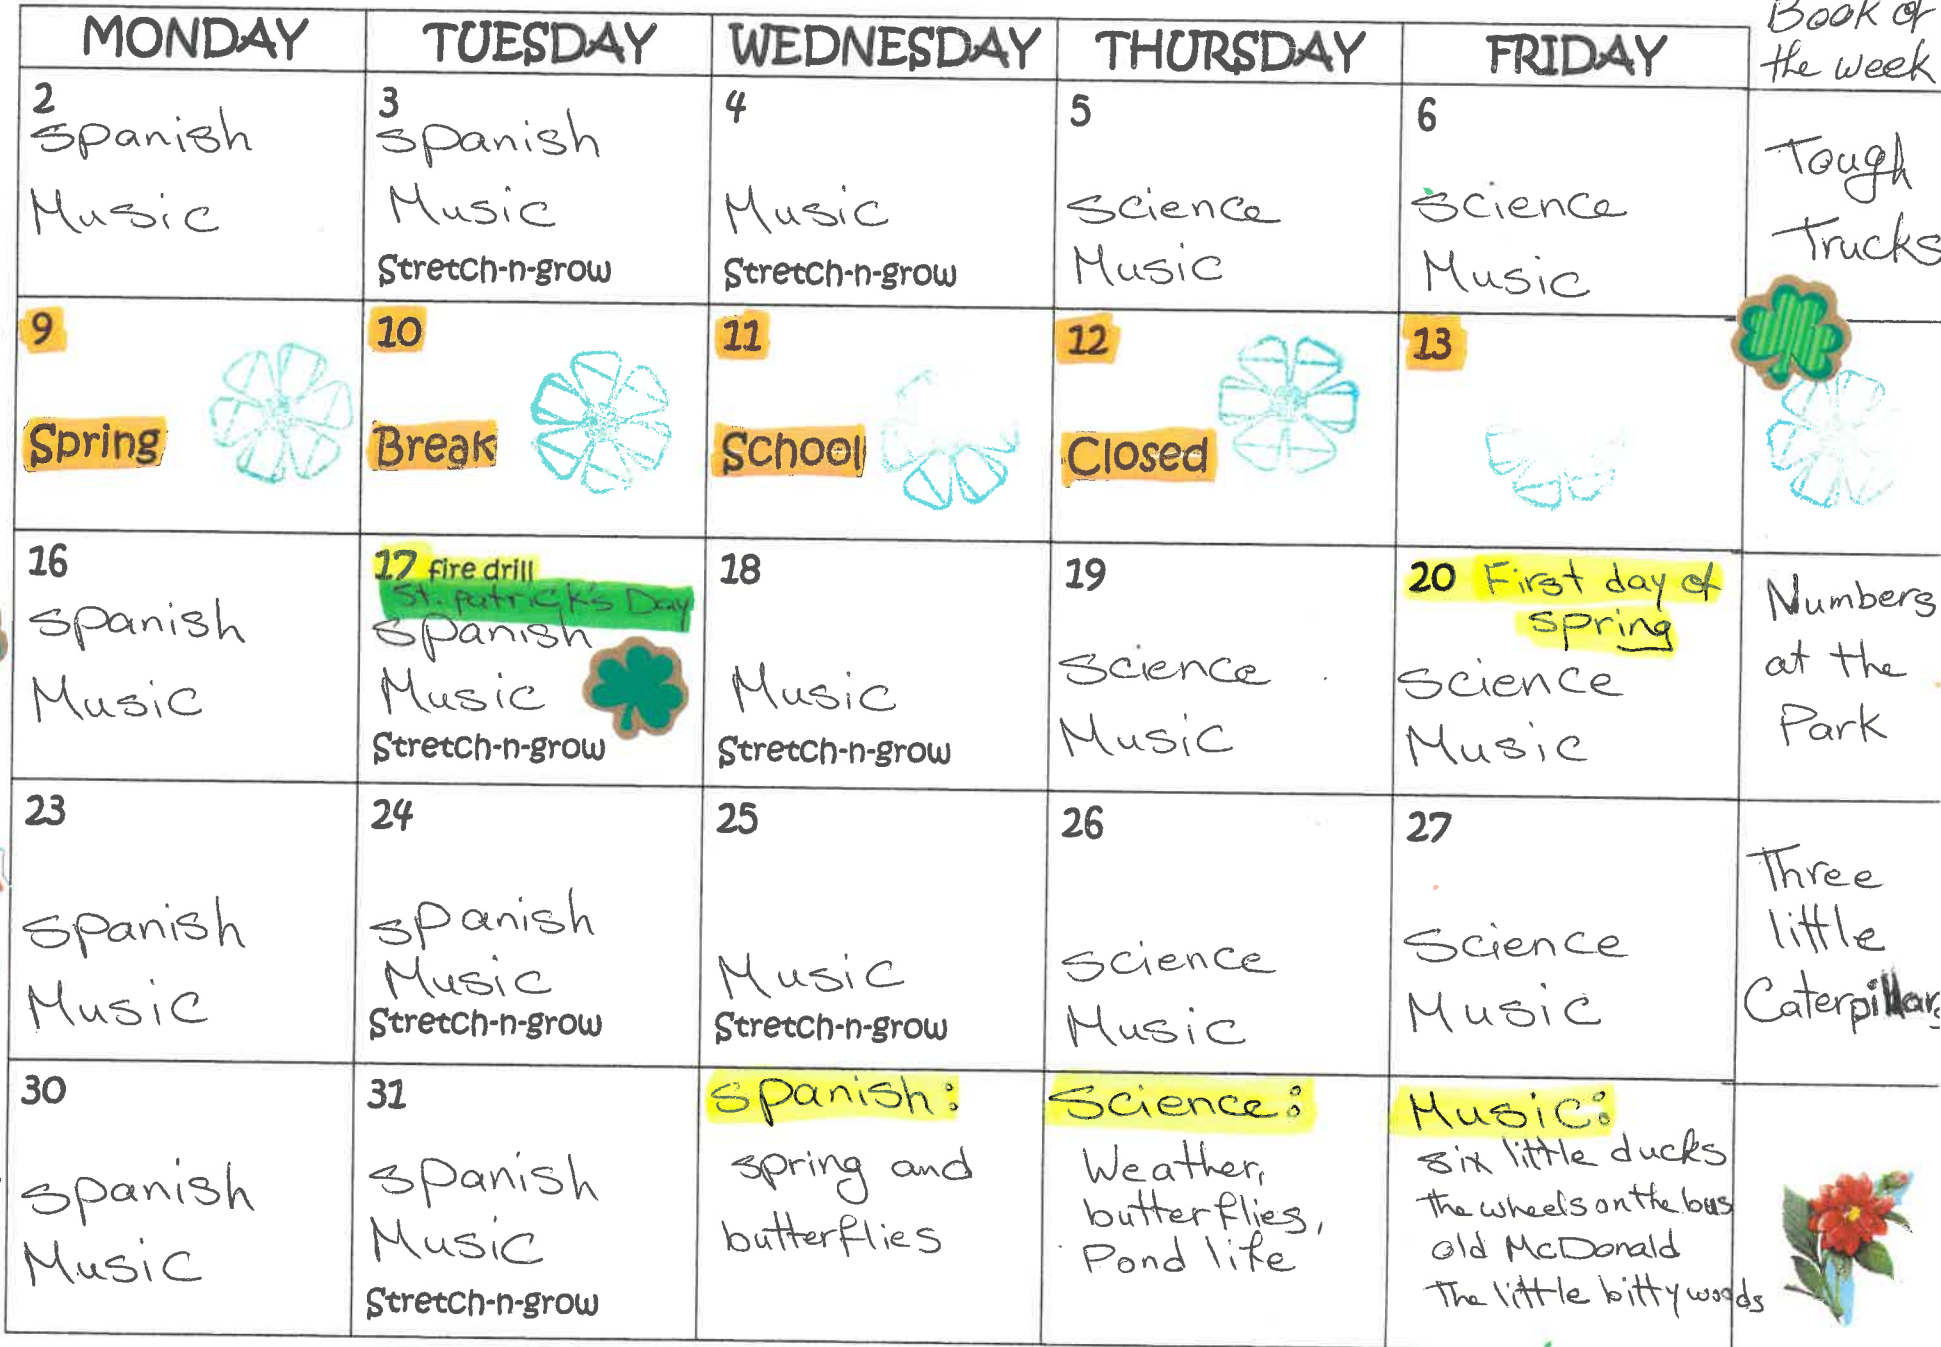 Book of
the week
MONDAY TUESDAY WEDNESDAY THURSDAY FRIDAY
2
Spanish
Music
3
Spanish
Music
Stretch-n-grow
4
Music
Stretch-n-grow
5
Science
Music
6
Science
Music
Tough
Trucks
9
Spring
10
Break
11
School
12
Closed
13
16
Spanish
Music
17 fire drill
St. patrick's Day
Spanish
Music
Stretch-n-grow
18
Music
Stretch-n-grow
19
Science
Music
20 First day of
spring
Science
Music
Numbers
at the
Park
23
Spanish
Music
24
Spanish
Music
Stretch-n-grow
25
Music
Stretch-n-grow
26
Science
Music
27
Science
Music
Three
little
Caterpillars
30
Spanish
Music
31
Spanish
Music
Stretch-n-grow
Spanish:
spring and
butterflies
Science:
Weather,
butterflies,
Pond life
Music:
six little ducks
the wheels on the bus
old McDonald
The little bitty woods